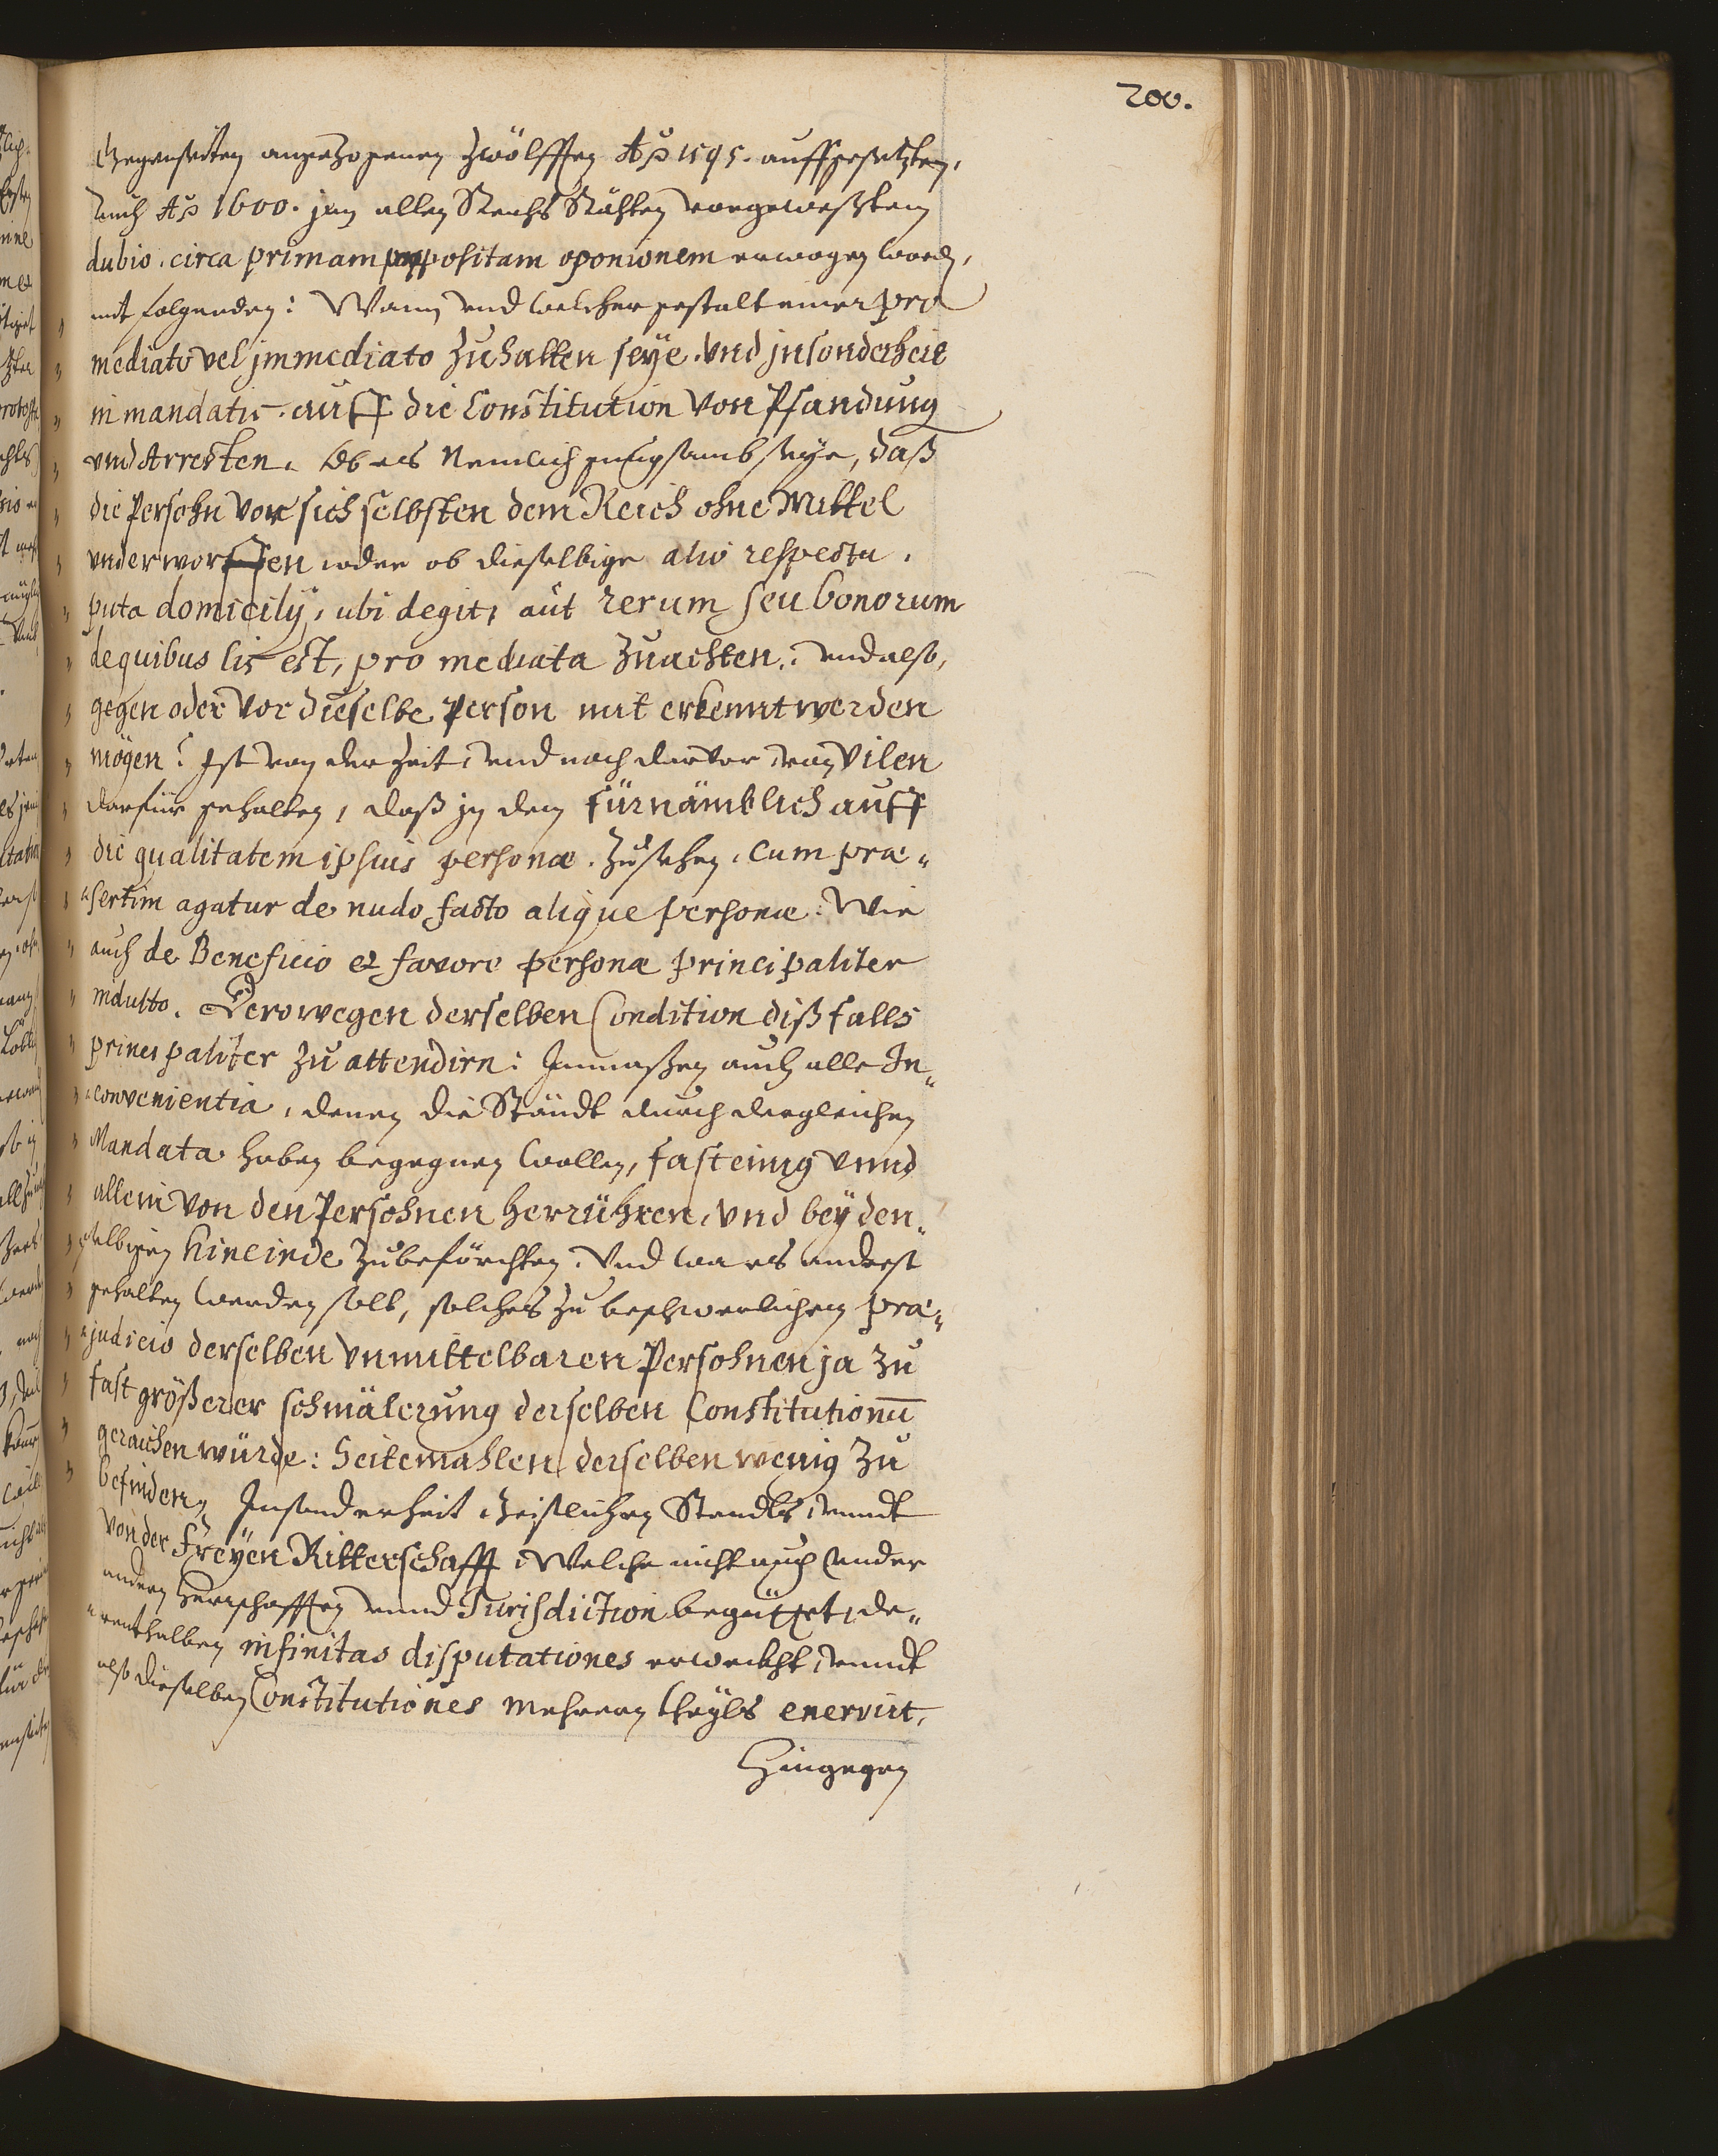 200.
Gegenseiten angezogenen Zwölfften Aō 1595. auffgesetzten,
vnd Aō 1600. jnn allen Reichs Stähten vorgewesten
dubio. circa primam propositam oponionem erwogen word,
mit folgenden: Wann vnd welcher gestalt einer pro
mediato vel jmmediato Zuhalten seÿe. vnd jnsonderheit
in mandatis. auff die Constitution von Pfandung
vnd Arresten. Ob es Nemlich gnugsamb seye, daß
die Persohn vor sich selbsten dem Reich ohne Mittel
vnderworffen, oder ob dieselbige alio respectu,
puta domicilÿ, ubi degit, aut rerum seu bonorum
de quibus lis est, pro mediata Zuachten: vnd also,
gegen oder vor dieselbe Person nit erkennt werden
mögen? Ist von der Zeit, vnd noch darvor, von vilen
darfür gehalten, daß jn dem fürnämblich auff
die qualitatem ipsius personæ. Zusehen. Cum præ„
„sertim agatur de nudo facto alique personæ: Wie
auch de Beneficio et favore personæ principaliter
indulto. Derowegen derselben Condition dißfalls
principaliter Zu attendirn: Inmaßen auch alle In„
„convenientia, denen die Ständt durch dergleichen
Mandata haben begegnen wollen, fast einig vnnd
allein von den Persohnen herrühren, vnd beÿ den„
„selbigen hineinde Zubeförchten. Vnd wa es anderst
gehalten werden solt, solches Zu beschwerlichem præ„
„judicio derselben vnmittelbaren Persohnen ja Zu
fast größerer schmälerung derselben Constitutionū
geraichen würde: Seitemahlen derselben wenig Zu
befinden, Insonderheit Geistlichen Standts, vnndt
von der Freÿen Ritterschafft, Welche nicht auch under
andern Herrschafften vnnd Jurisdiction begüttet, de„
„renthalben infinitas disputationes erweckht, vnndt
also dieselben Constitutiones mehrern theÿls enervirt,
Hingegen